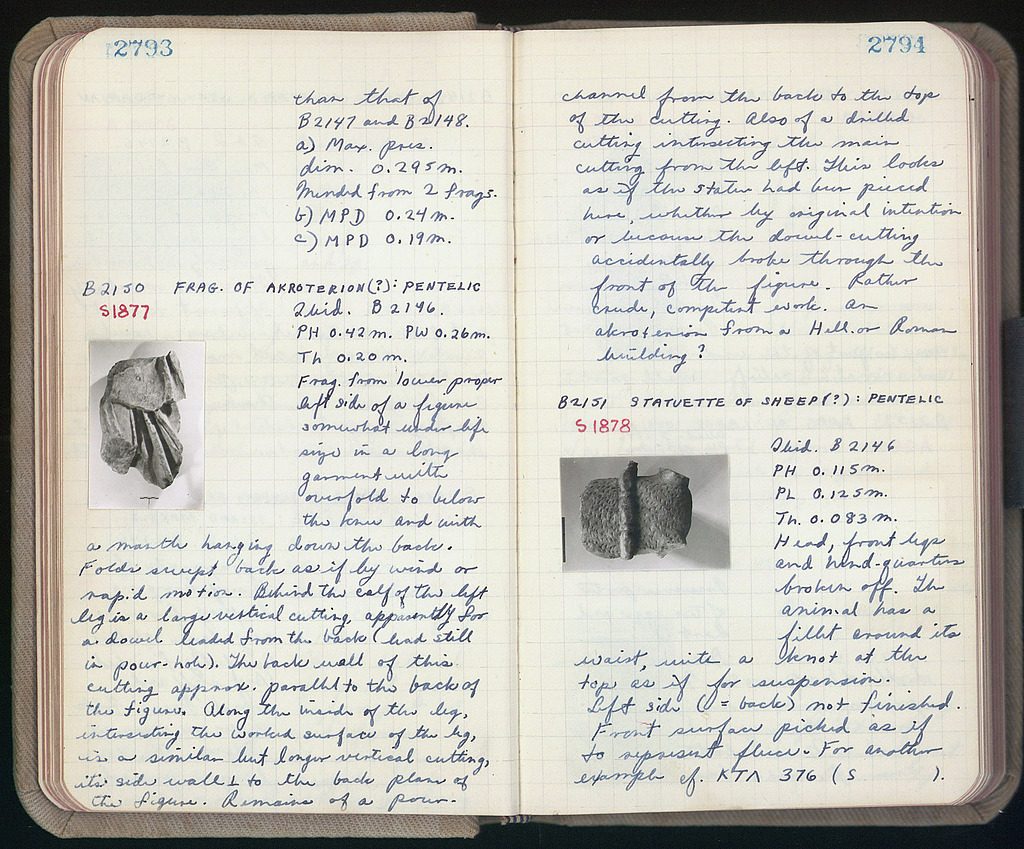 2793
than that of
B2147 and B2148.
a) Max. pres.
dim. 0.295m.
Mended from 2 frags.
b) MPD 0.24m.
c) MPD 0.19m.
B2150 FRAG. OF AKROTERION(?): PENTELIC
S1877
Ibid. B2146.
PH 0.42m. PW 0.26m.
Th 0.20m.
Frag. from lower proper
left side of a figure
somewhat under life
size in a long
garment with
overfold to below
the knee and with
a mantle hanging down the back.
Folds swept back as if by wind or
rapid motion. Behind the calf of the left
leg is a large vertical cutting, apparently for
a dowel leaded from the back (lead still
in pour-hole). The back wall of this
cutting approx. parallel to the back of
the figure. Along the inside of the leg,
intersecting the worked surface of the leg,
is a similar but longer vertical cutting,
its side wall ⊥ to the back plane of
the figure. Remains of a pour-
2794
channel from the back to the top
of the cutting. Also of a drilled
cutting intersecting the main
cutting from the left. This looks
as if the statue had been pieced
here, whether by original intention
or because the dowel-cutting
accidentally broke through the
front of the figure. Rather
crude, competent work. An
akroterion from a Hell. or Roman
building?
B2151 STATUETTE OF SHEEP(?): PENTELIC
S1878
Ibid. B2146
PH 0.115m.
PL 0.125m.
Th. 0.083m.
Head, front legs
and hind-quarters
broken off. The
animal has a
fillet around its
waist, with a knot at the
top as if for suspension.
Left side (= back) not finished.
Front surface picked as if
to represent fleece. For another
example cf. KTΛ 376 (S ).